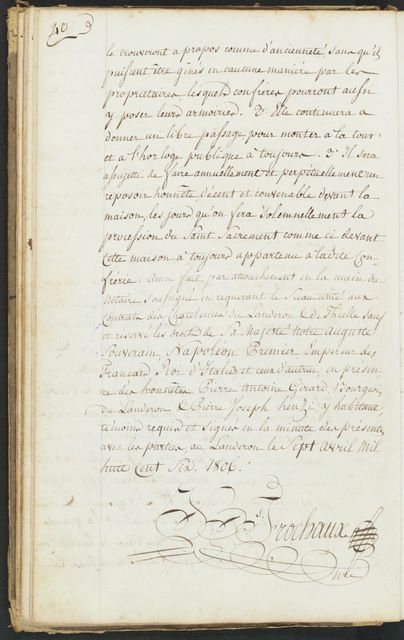 40
le trouveront a propos comme d'ancienneté, sans qu'ils
puissent être gênés en aucune manière par les
propriétaires lesquels confreres pourront aussi
y poser leurs armoiries. 2°. Elle continuera a
donner un libre passage pour monter a la tour
et a l'horloge publique a toujours. 3°. Il sera
assujetti de faire annuellement et perpétuellement un
reposoir honnête décent et convenable devant la
maison, les jours qu'on fera solemnellement la
procession du Saint Sacrement comme ci devant
cette maison a toujours appartenu a ladite Con
frérie. Ainsi fait par attouchement en la main du
notaire soussigné en requerant le Sceau usité aux
Contrats des Chatelenies du Landeron & de Thielle sauf
et réservé les droits de Sa Majesté Notre Auguste
Souverain Napoléon Premier Empereur des
Français Roi d'Italie et ceux d'autrui, en présen
ce des honnêtes Pierre Antoine Girard Bourgeois
du Landeron & Pierre Joseph habitans,
témoins requis et signés en la minute des présentes
avec les parties, au Landeron le Sept Avril Mil
huit Cent Six. 1806.
Frochaux
not.